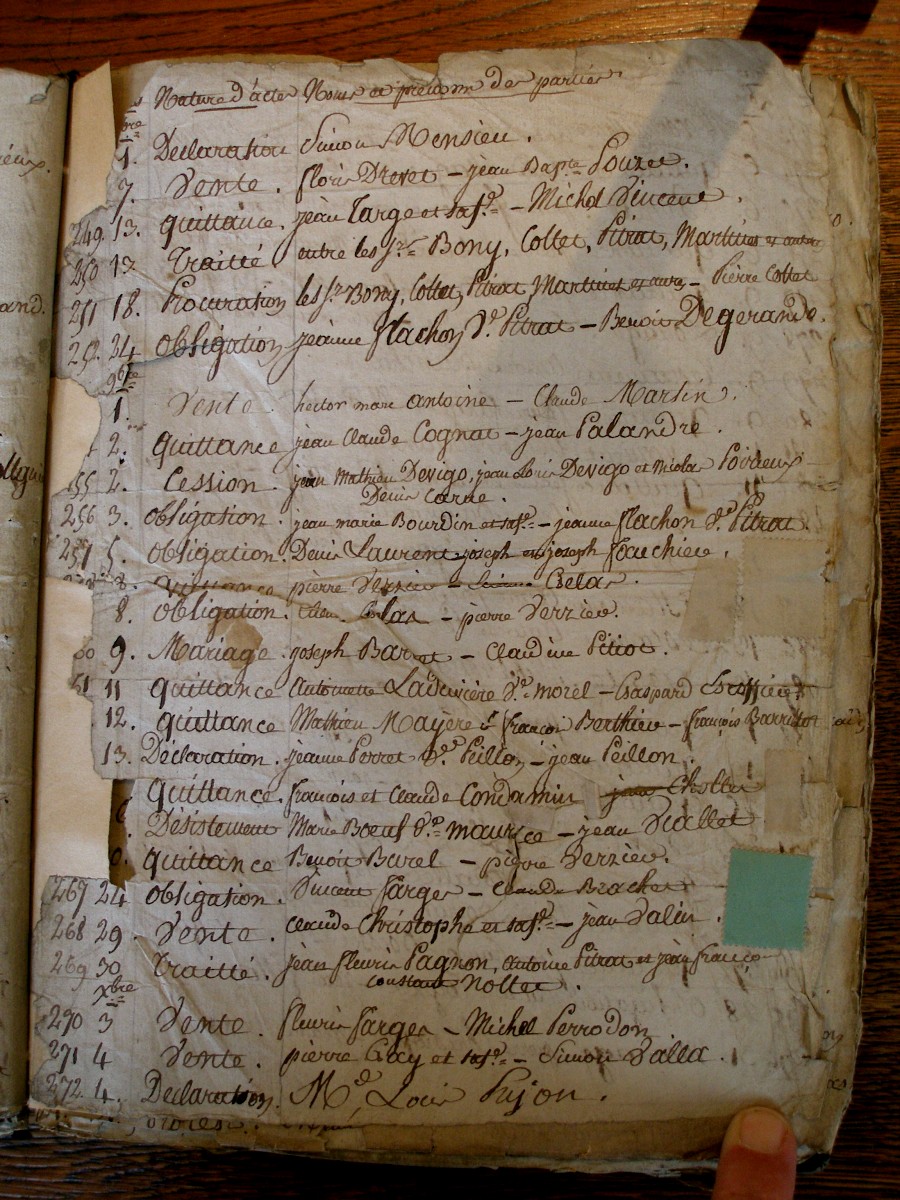 Nature d'actes Noms et prenom des parties
bre
1. Declaration Simon Monsieu.
7. Vente. floris Drevet – jean Bapte Pouzet.
249. 13. quittance. jean Targe et sa fe. – Michel Vincent
250 17 Traitté. entre les Srs. Bony, Collet, Pitrat, Martinet et autres
251 18. Procuration les Srs Bony, Collet, Pitrat Martinet et autres – Pierre Collet
252. 24 obligation jeanne flachon Ve. Pitrat – Benoit Degerande.
9bre
1. Vente. hector marc antoine – Claude Martin.
2. quittance jean Claude Cognat – jean Palandre.
255 2. Cession. jean Mathieu Devigo, jean Louis Devigo et Nicolas
Denis Carne.
256 3. obligation. jean marie Bourdin et sa fe. – jeanne flachon Ve. Pitrat.
257 5. obligation. Denis Laurent joseph fauchier.
8. quittance pierre Verzieu – Celas.
8. obligation. Celas – pierre Verzieu.
9. Mariage joseph Barret – Claudine Pitiot.
61 11 quittance Antoinette Laduvière Ve. morel – Gaspard
12. quittance Mathieu Mayère et françois Berthieu – françois
13. Déclaration. jeanne Perret Ve. Peillon – jean Peillon.
quittance. françois et Claude Condamin
Désistement Marie Boeuf Ve. maurice – jean Viallet
quittance Benoit Barel – pierre Verzieu.
267 24 obligation. Vincent farges – Claude Brachet
268 29. Vente. claude Christophe et sa fe. – jean Valin.
269 30 Traitté. jean fleuris Pagnon, antoine Pitrat et jean françois
constant Nollet.
Xbre
270 3 Vente. fleuris farges – Michel Perrodon
271 4 Vente. pierre Gay et sa fe. – Simon Valla.
272 4. Declaration. Md. Louis Pujon.